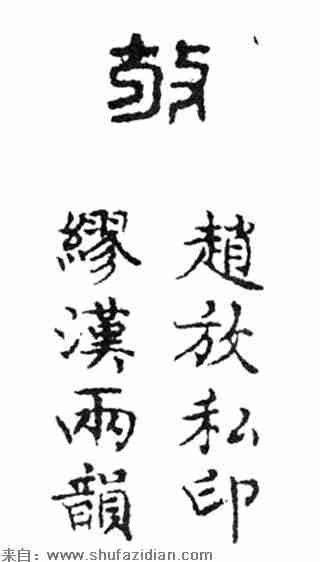 放
趙放私印
繆漢兩韻
来自：www.shufazidian.com